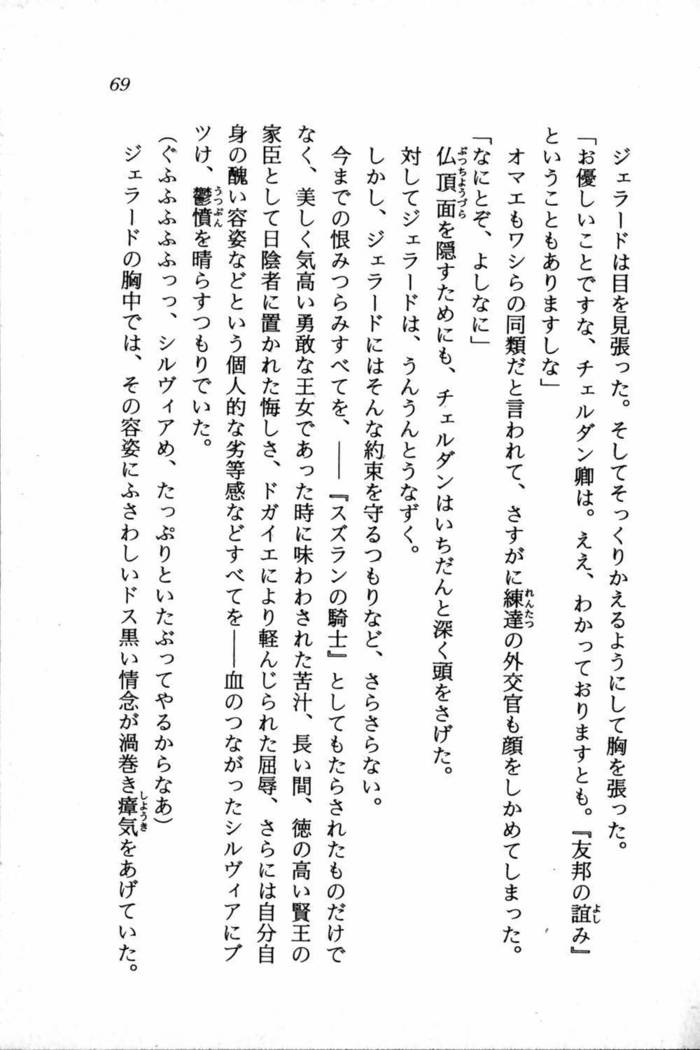 69
ジェラードは目を見張った。そしてそっくりかえるようにして胸を張った。
「お優しいことですな、チェルダン卿は。ええ、わかっておりますとも。『友邦の誼み』
ということもありますしな」
オマエもワシらの同類だと言われて、さすがに練達の外交官も顔をしかめてしまった。
「なにとぞ、よしなに」
仏頂面を隠すためにも、チェルダンはいちだんと深く頭をさげた。
対してジェラードは、うんうんとうなずく。
しかし、ジェラードにはそんな約束を守るつもりなど、さらさらない。
今までの恨みつらみすべてを、――『スズランの騎士』としてもたらされたものだけで
なく、美しく気高い勇敢な王女であった時に味わわされた苦汁、長い間、徳の高い賢王の
家臣として日陰者に置かれた悔しさ、ドガイエにより軽んじられた屈辱、さらには自分自
身の醜い容姿などという個人的な劣等感などすべてを――血のつながったシルヴィアにブ
ツけ、鬱憤を晴らすつもりでいた。
(ぐふふふふふっっ、シルヴィアめ、たっぷりといたぶってやるからなあ)
ジェラードの胸中では、その容姿にふさわしいドス黒い情念が渦巻き瘴気をあげていた。